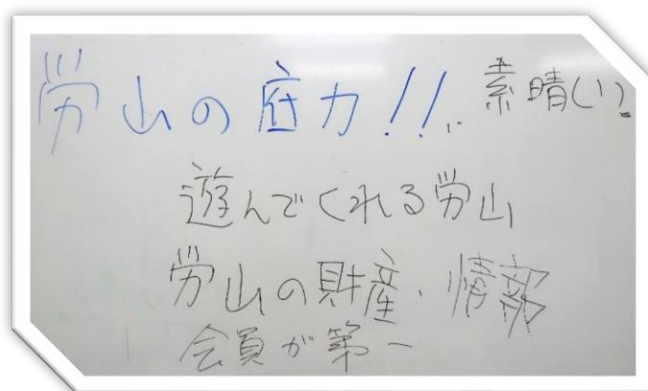 労山の底力!! 素晴しい。
遊んでくれる労山
労山の財産・情報
会員が第一